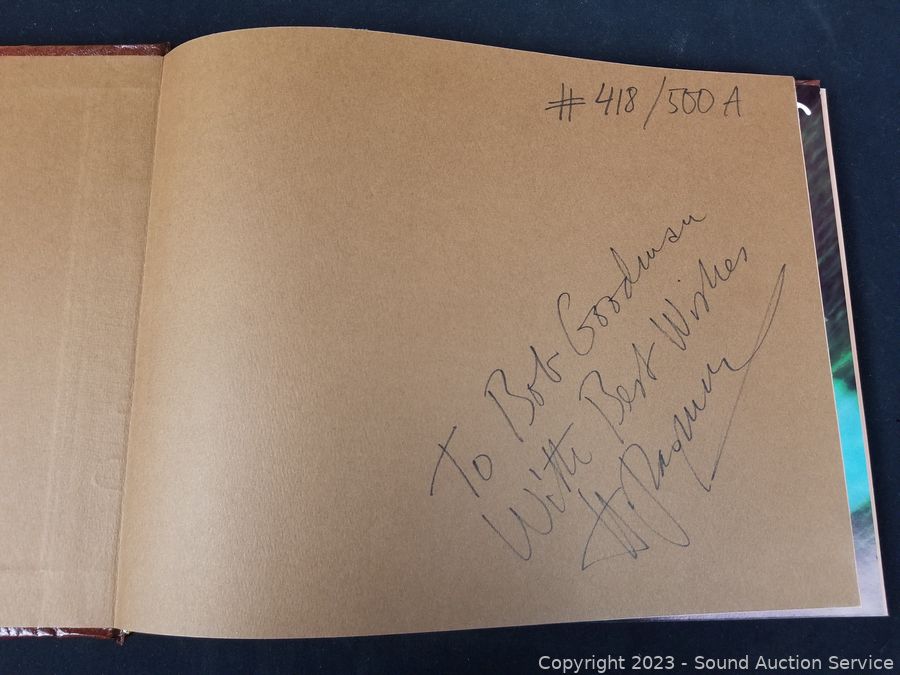 # 418/500 A
To Bob Goodman
With Best Wishes
Copyright 2023 - Sound Auction Service